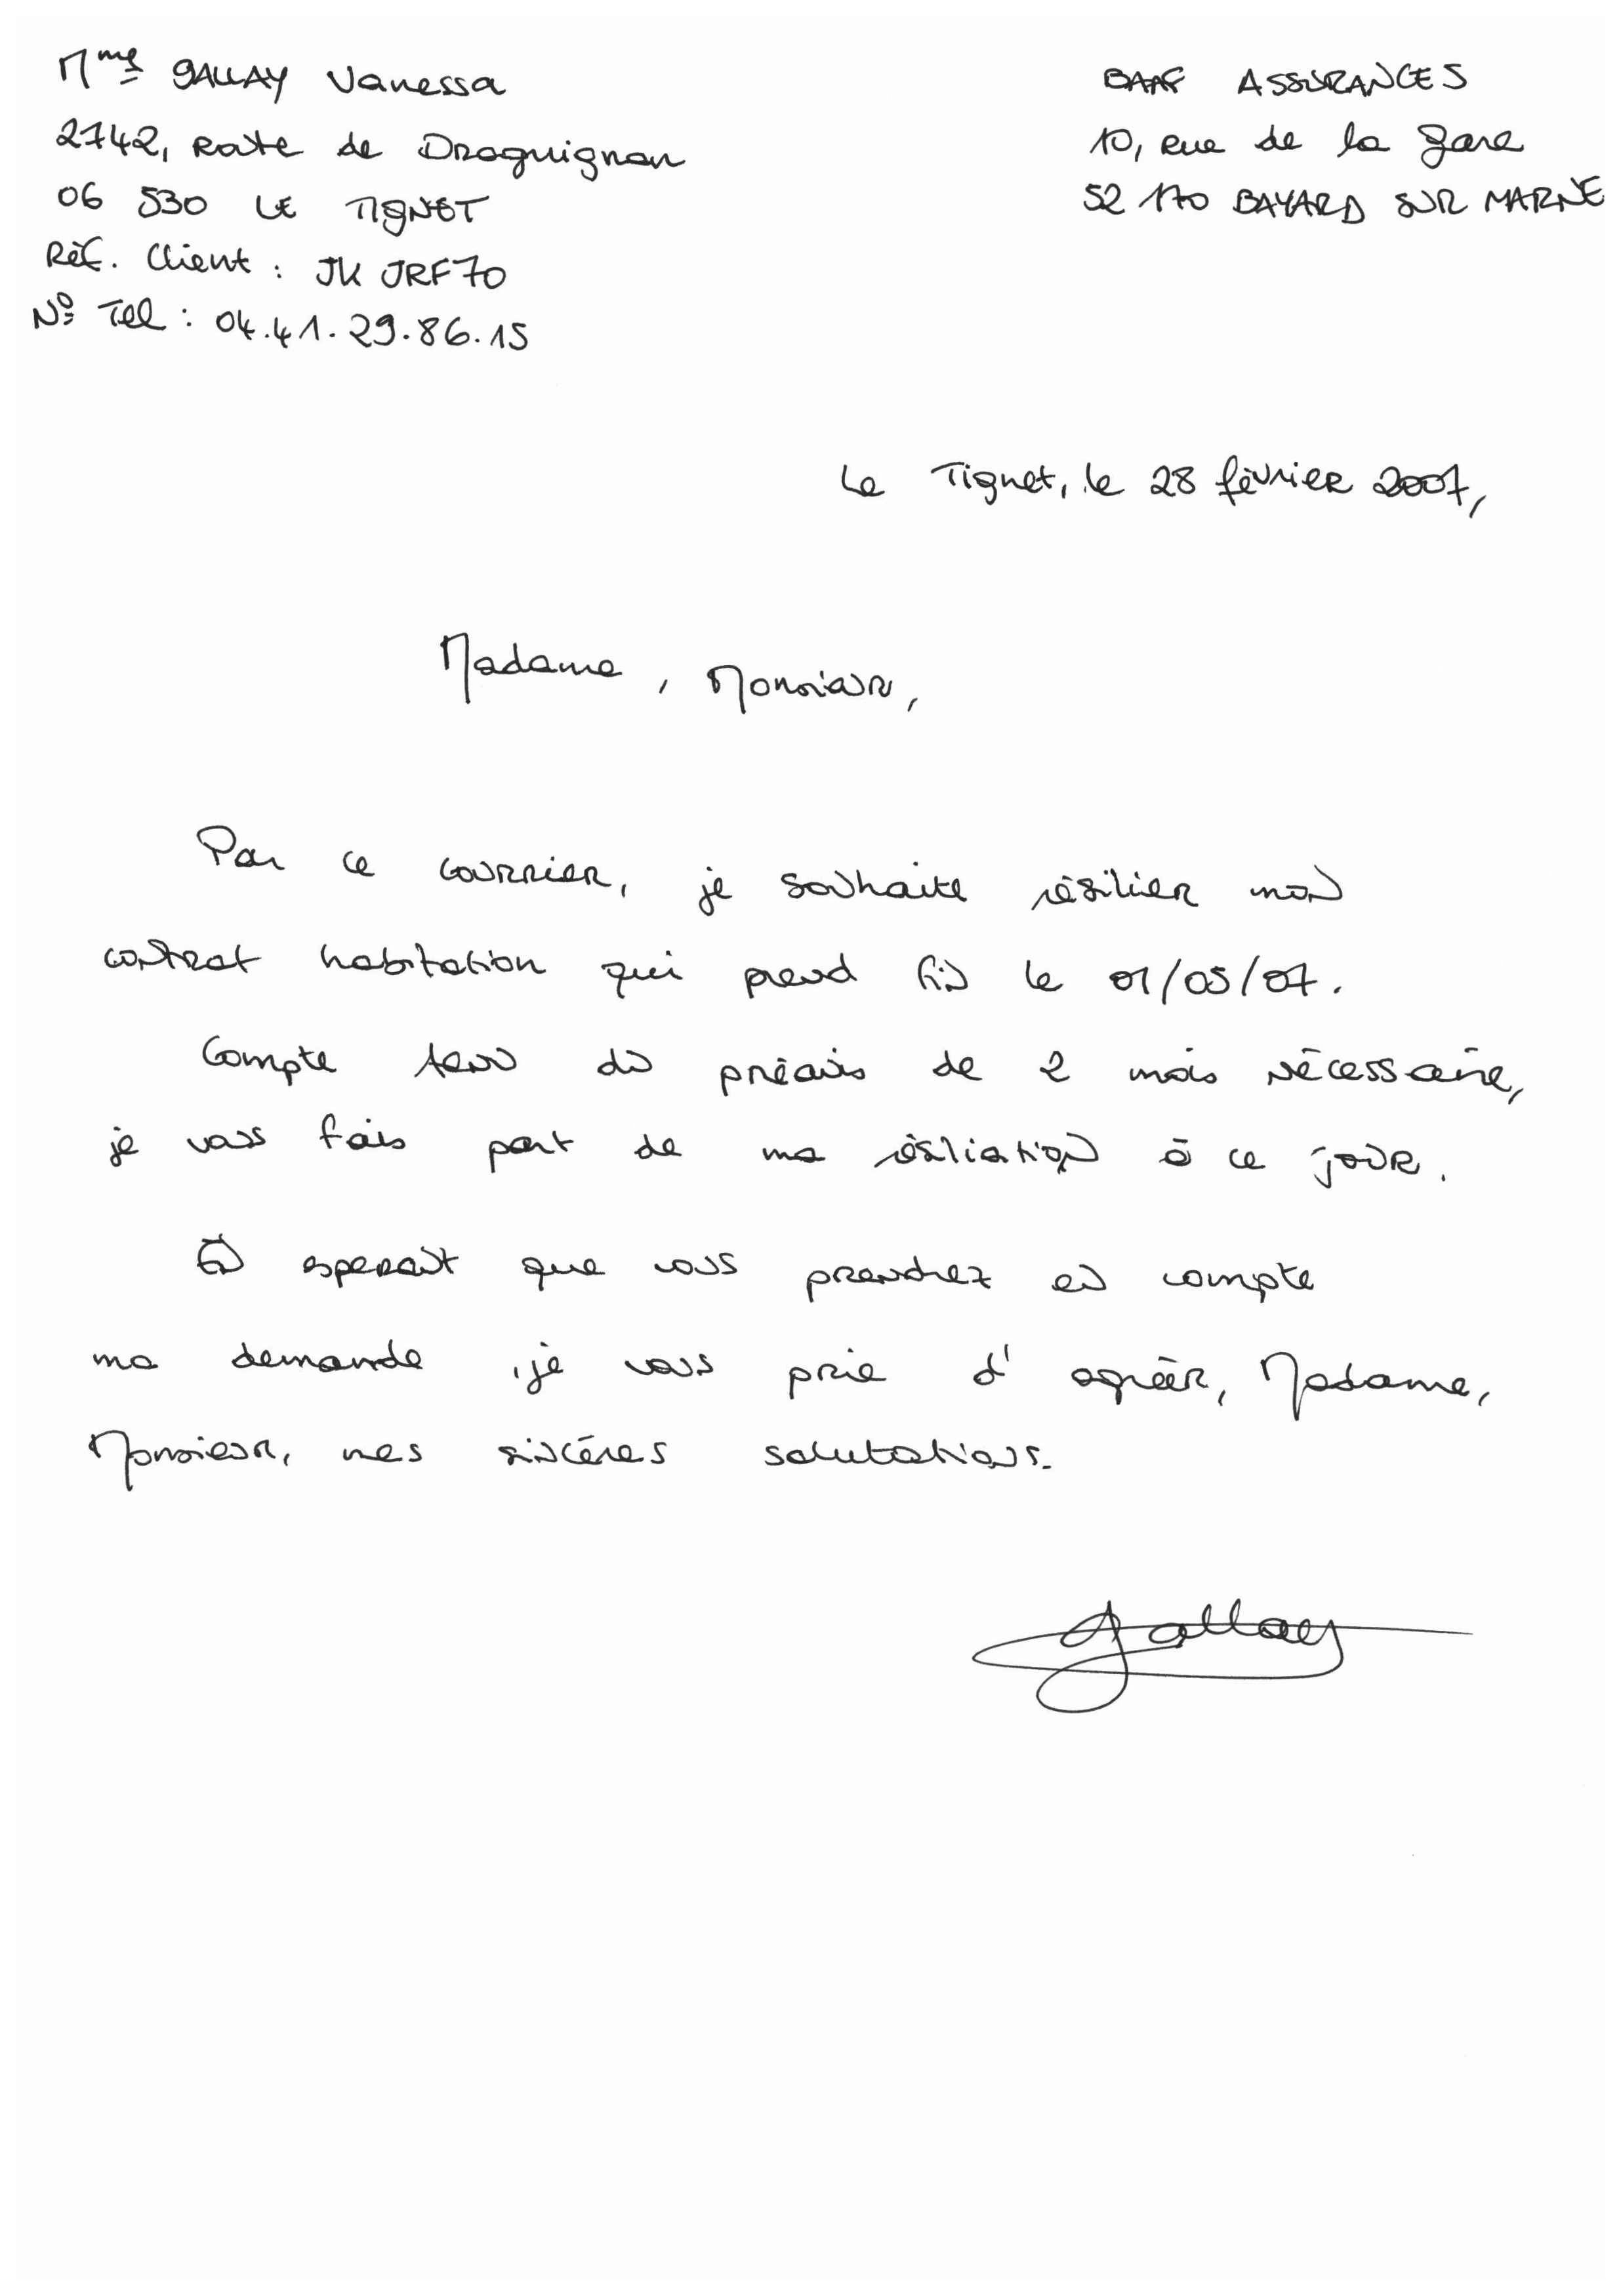 Mme GALLAY Vanessa
2742, Route de Draguignan
06 530 LE TIGNET
Réf. Client : JKJRF70
N° Tel : 04.41.29.86.15
BAAF ASSURANCES
10, rue de la gare
52 170 BAYARD SUR MARNE
Le Tignet, le 28 février 2007,
Madame, Monsieur,
Par ce courrier, je souhaite résilier mon
contrat habitation qui prend fin le 01/05/07.
Compte tenu du préavis de 2 mois nécessaire,
je vous fais part de ma résiliation à ce jour.
En esperant que vous prendrez en compte
ma demande, je vous prie d'agréer, Madame,
Monsieur, mes sincères salutations.
Gallay